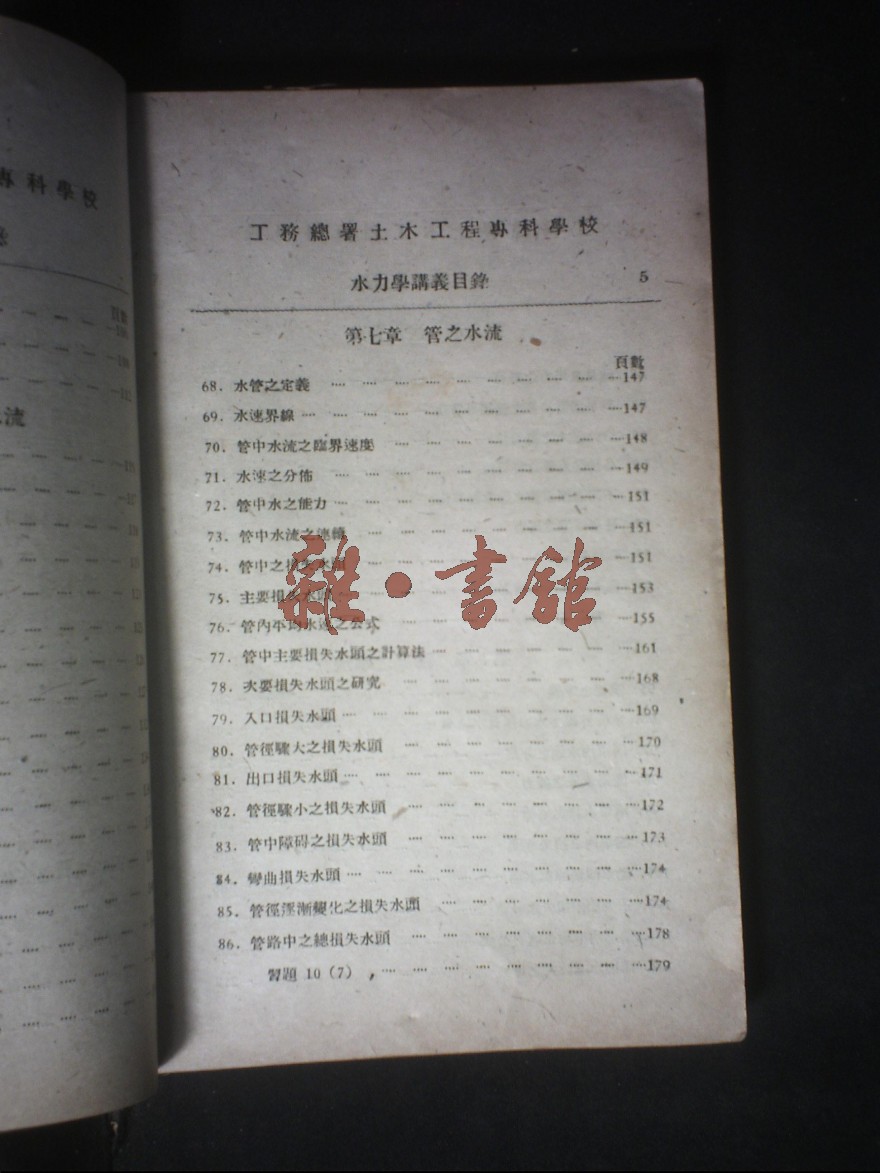 專科學校
流
工務總署土木工程專科學校
水力學講義目錄 5
第七章 管之水流
頁數
68. 水管之定義 147
69. 水速界線 147
70. 管中水流之臨界速度 148
71. 水速之分佈 149
72. 管中水之能力 151
73. 管中水流之連續 151
74. 管中之損失水頭 151
75. 主要損失水頭 153
76. 管內平均水速之公式 155
77. 管中主要損失水頭之計算法 161
78. 次要損失水頭之研究 168
79. 入口損失水頭 169
80. 管徑驟大之損失水頭 170
81. 出口損失水頭 171
82. 管徑驟小之損失水頭 172
83. 管中障碍之損失水頭 173
84. 彎曲損失水頭 174
85. 管徑逐漸變化之損失水頭 174
86. 管路中之總損失水頭 178
習題 10 (7) 179
雜·書館